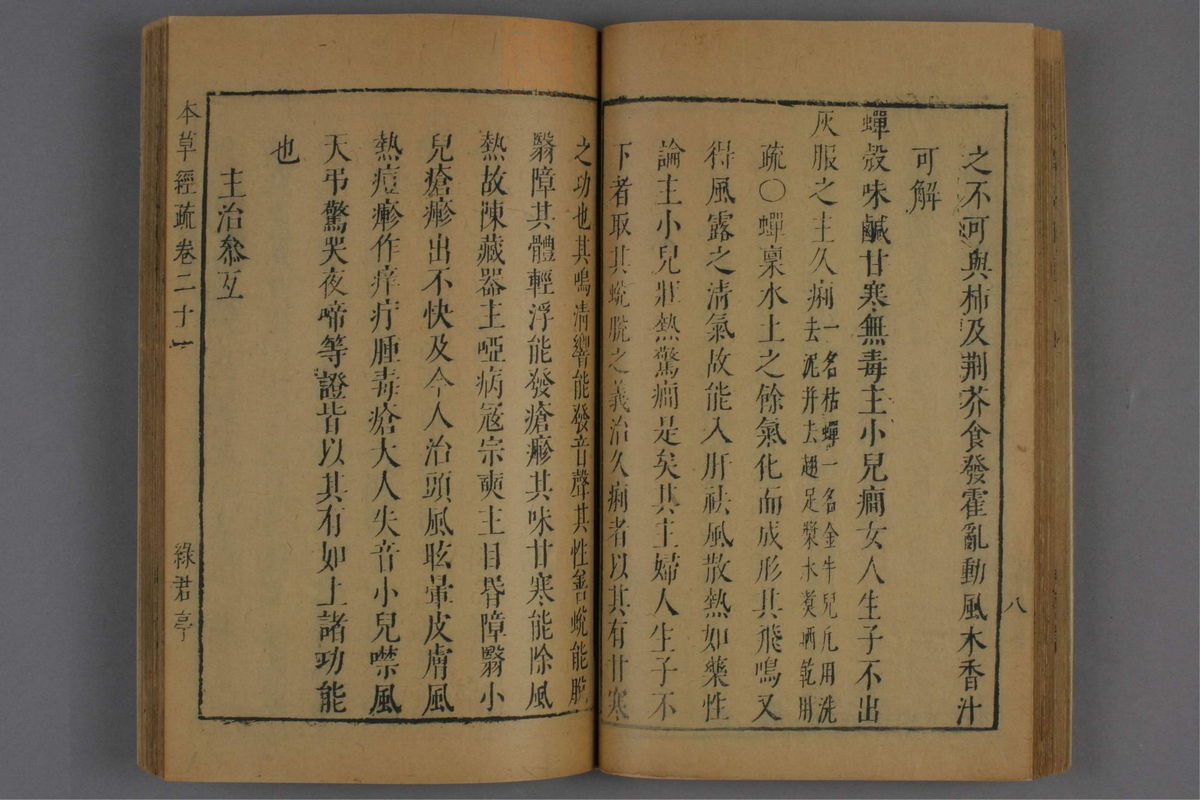 之不可與柿及荆芥食發霍亂動風木香汁
可解
蟬殼味鹹甘寒無毒主小兒癎女人生子不出
灰服之主久痢
一名枯蟬一名金牛兒凡用洗
去泥并去翅足漿水煑晒乾用
疏○蟬稟水土之餘氣化而成形其飛鳴又
得風露之清氣故能入肝祛風散熱如藥性
論主小兒壯熱驚癎是矣其主婦人生子不
下者取其蛻脫之義治久痢者以其有甘寒
之功也其鳴清響能發音聲其性善蛻能脫
翳障其體輕浮能發瘡疹其味甘寒能除風
熱故陳藏器主啞病寇宗奭主目昏障翳小
兒瘡疹出不快及今人治頭風眩暈皮膚風
熱痘疹作痒疔腫毒瘡大人失音小兒噤風
天弔驚哭夜啼等證皆以其有如上諸功能
也
主治叅互
本草經疏卷二十一
綠君亭
八